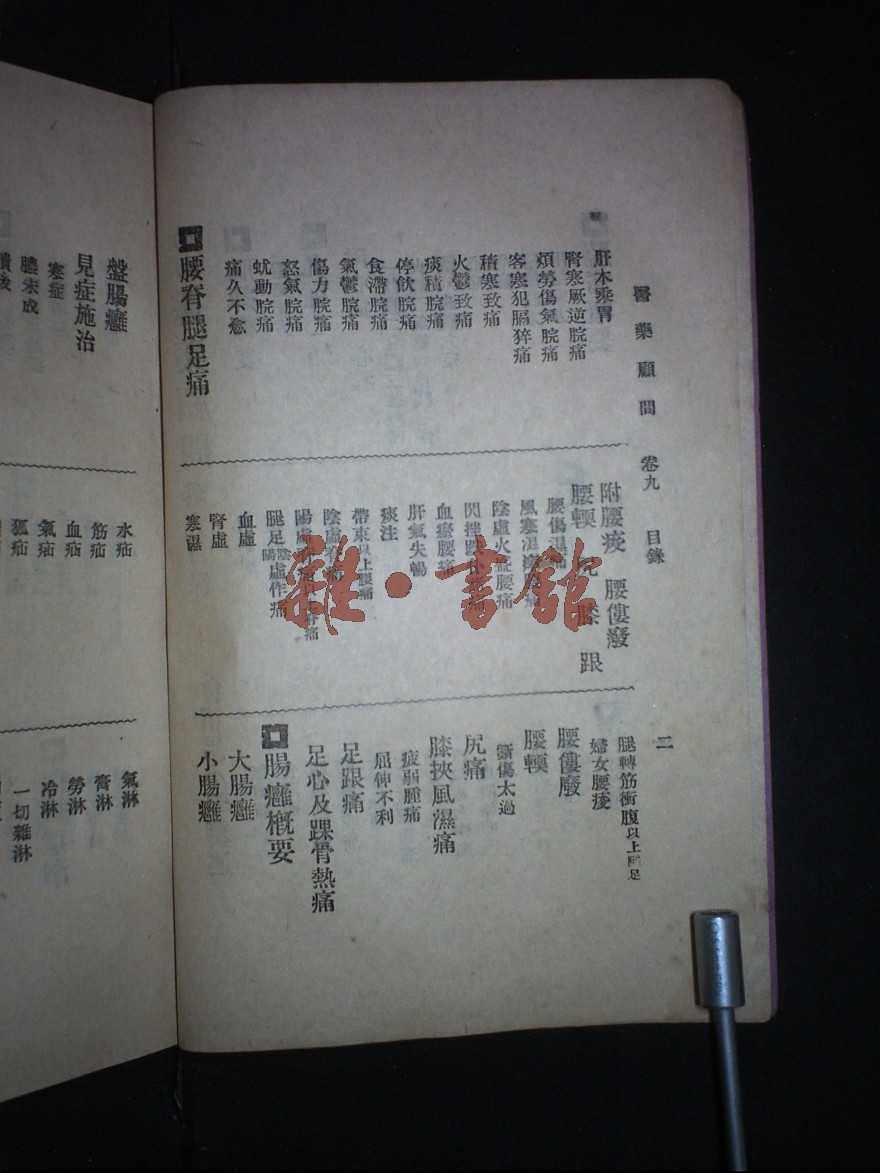 醫藥顧問 卷九 目錄 二
肝木乘胃
腎寒厥逆脘痛
煩勞傷氣脘痛
客寒犯膈猝痛
積寒致痛
火鬱致痛
痰積脘痛
停飲脘痛
食滯脘痛
氣鬱脘痛
傷力脘痛
怒氣脘痛
蚘動脘痛
痛久不愈
腰脊腿足痛
附腰痠 腰僂癈
腰輭 尻 膝 跟
腰傷濕痛
風寒濕腰痛
陰虛火盛腰痛
閃挫腰痛
血瘀腰痛
肝氣失暢
痰注
帶束以上腰痛
陰虛脊痛
陽虛
腿足陰陽虛作痛
血虛
腎虛
寒濕
腿轉筋衝腹以上腿足
婦女腰痠
腰僂癈
腰輭
斲傷太過
尻痛
膝挾風濕痛
疲弱腫痛
屈伸不利
足跟痛
足心及踝骨熱痛
腸癰概要
大腸癰
小腸癰
盤腸癰
見症施治
寒症
膿未成
潰後
水疝
筋疝
血疝
氣疝
狐疝
氣淋
膏淋
勞淋
冷淋
一切雜淋
雜·書館